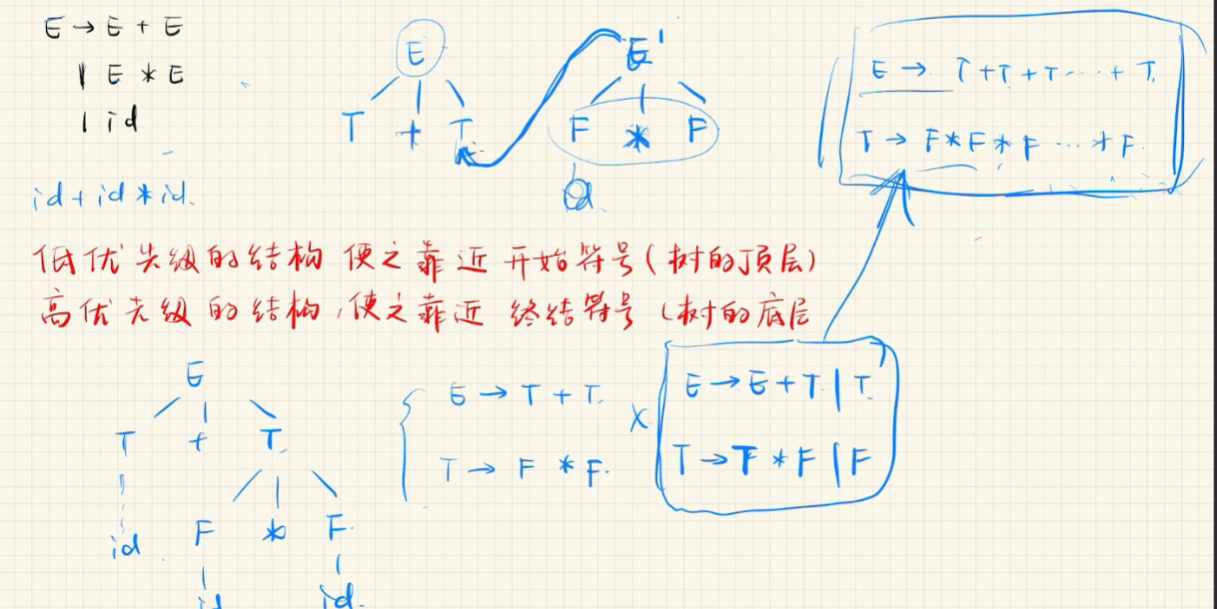 E → E + E
| E * E
| id
id + id * id.
E
T + T
E'
F * F
E → T+T+T ··· + T.
T → F*F*F ··· * F.
低优先级的结构 使之靠近开始符号(树的顶层)
高优先级的结构,使之靠近 终结符号(树的底层
E
T + T.
id F * F.
id id.
E → T + T.
T → F * F.
×
E → E + T | T.
T → T * F | F